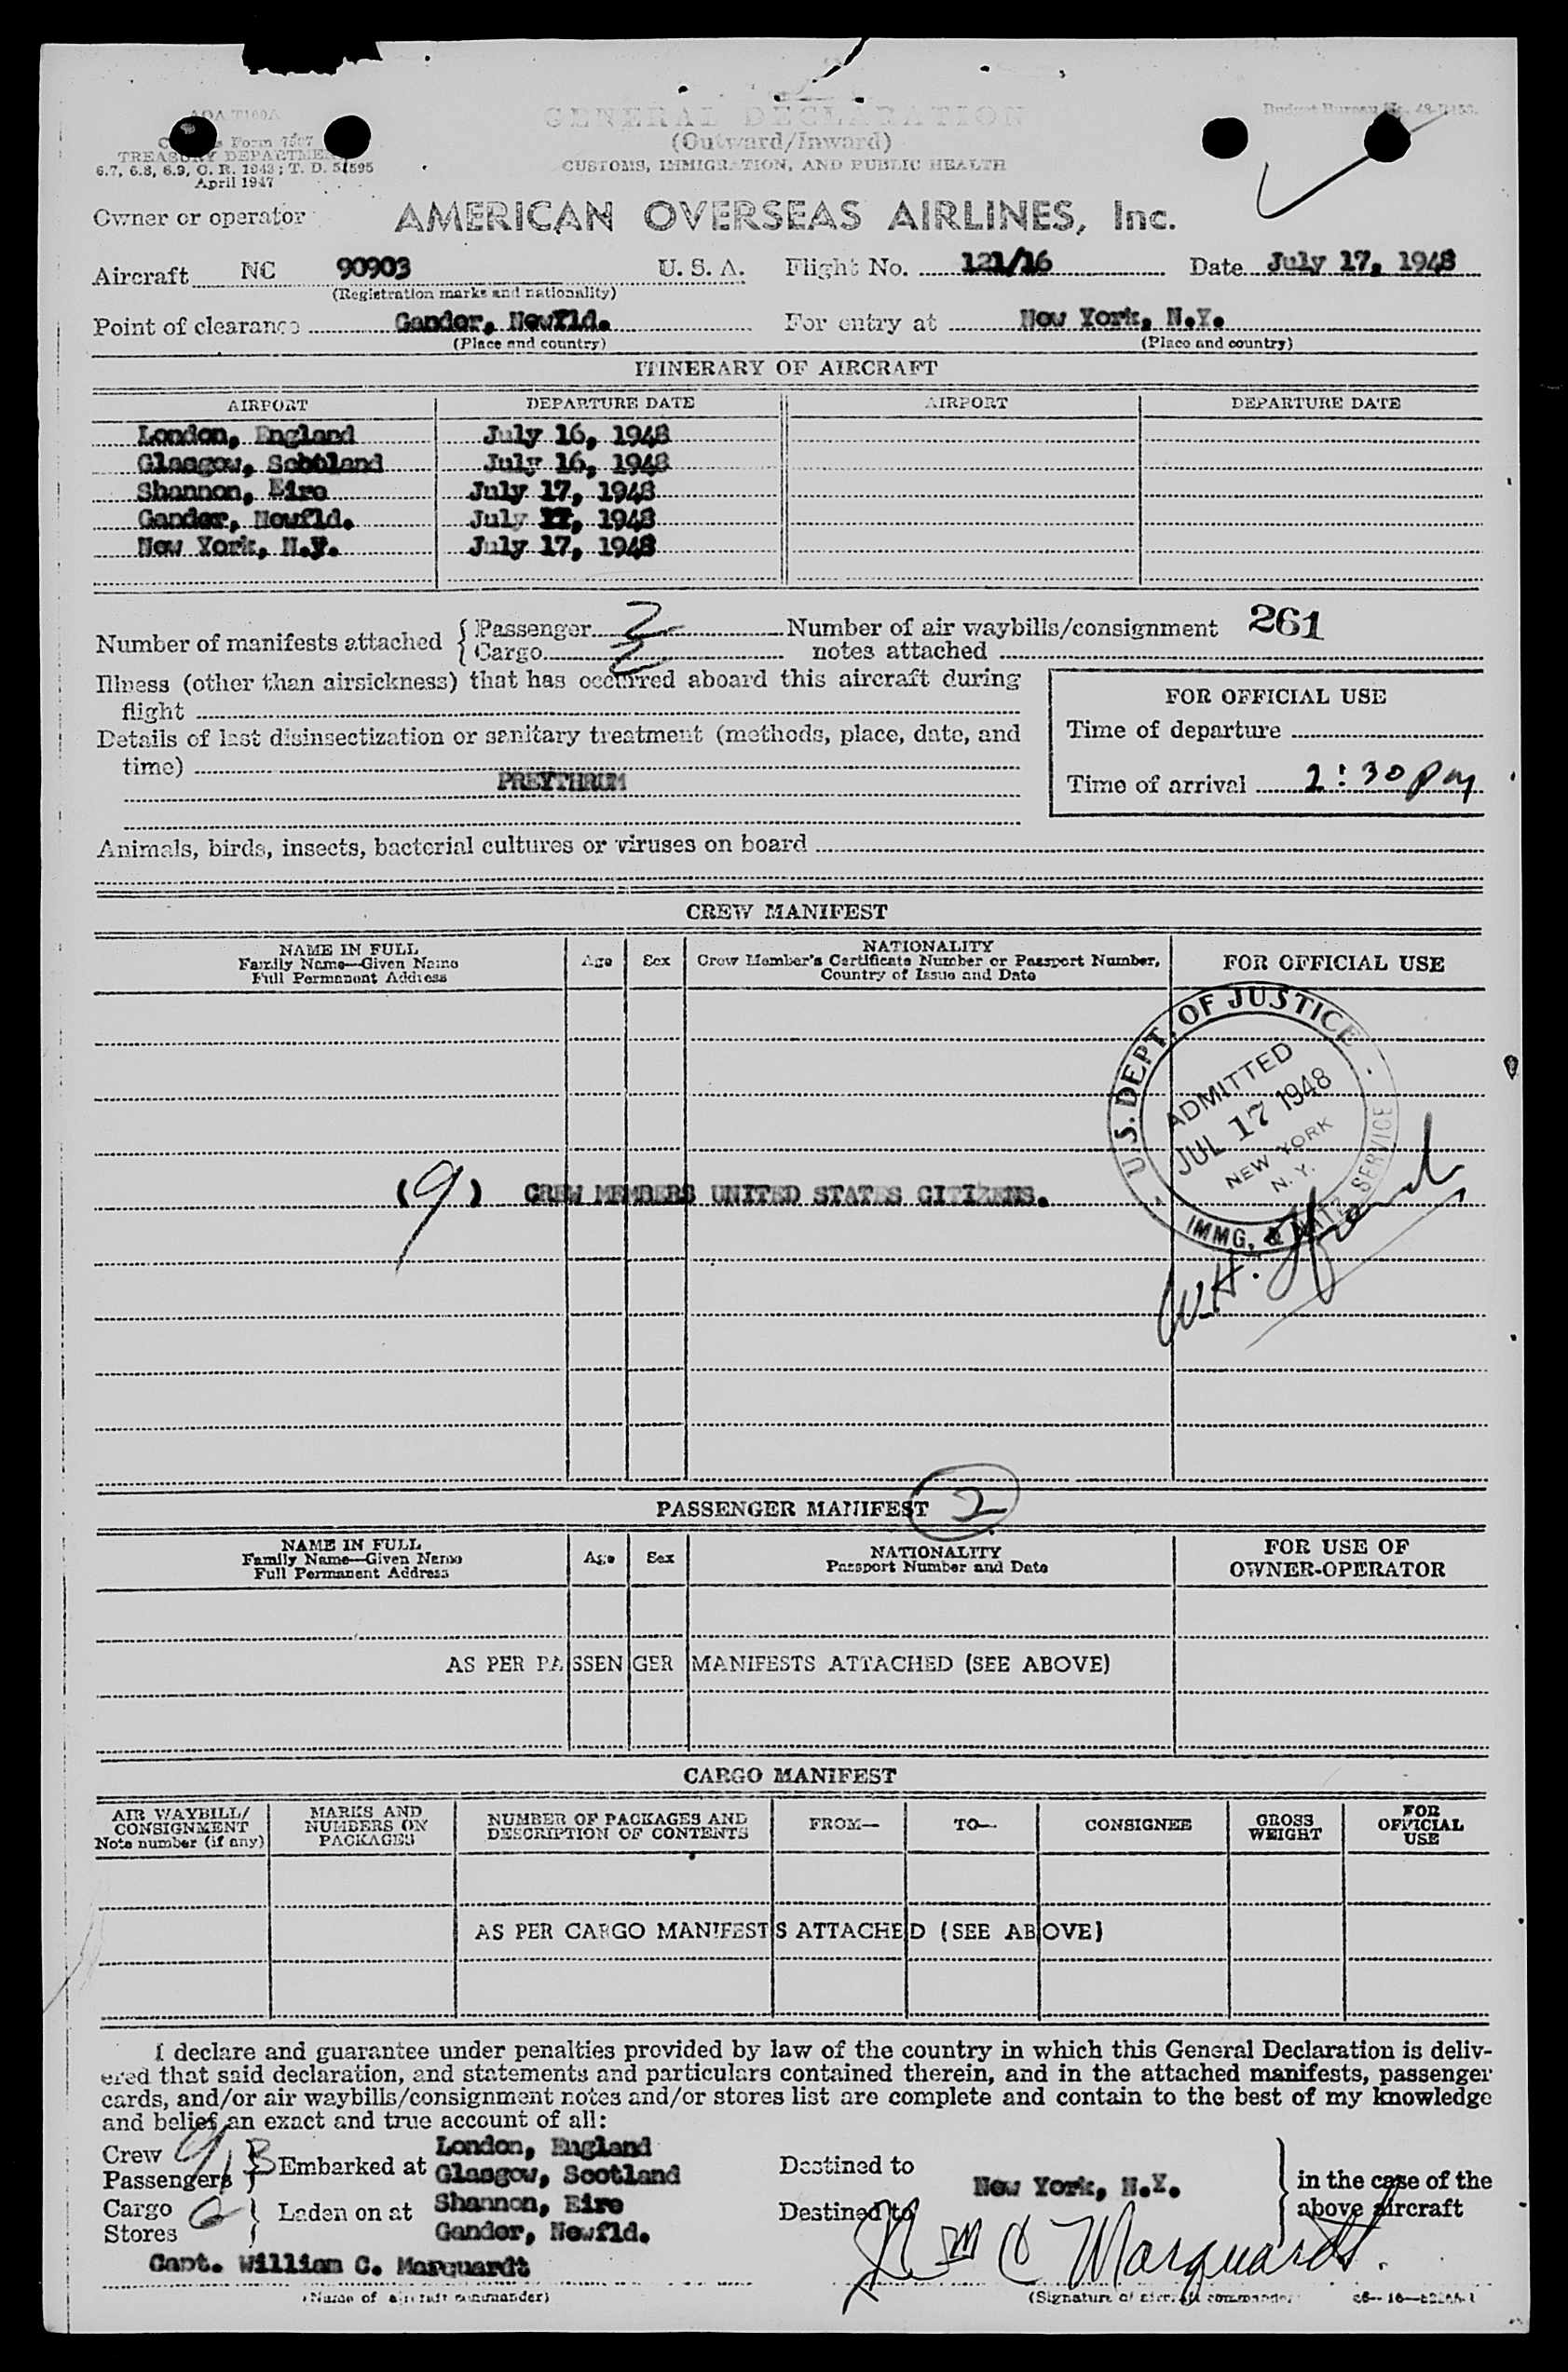 AOA T100A
GENERAL DECLARATION
(Outward/Inward)
CUSTOMS, IMMIGRATION, AND PUBLIC HEALTH
Form 7507
TREASURY DEPARTMENT
6.7, 6.8, 6.9, C. R. 1943; T. D. 51595
April 1947
Budget Bureau No.
Owner or operator AMERICAN OVERSEAS AIRLINES, Inc.
Aircraft NC 90903 U. S. A. Flight No. 121/16 Date July 17, 1948
(Registration marks and nationality)
Point of clearance Gander, Newfld. For entry at New York, N.Y.
(Place and country) (Place and country)
ITINERARY OF AIRCRAFT
AIRPORT DEPARTURE DATE AIRPORT DEPARTURE DATE
London, England July 16, 1948
Glasgow, Scotland July 16, 1948
Shannon, Eire July 17, 1948
Gander, Newfld. July 17, 1948
New York, N.Y. July 17, 1948
Number of manifests attached { Passenger 2 Number of air waybills/consignment 261
{ Cargo 2 notes attached
Illness (other than airsickness) that has occurred aboard this aircraft during
flight
Details of last disinsectization or sanitary treatment (methods, place, date, and
time)
PREYTHRUM
FOR OFFICIAL USE
Time of departure
Time of arrival 2:30 pm
Animals, birds, insects, bacterial cultures or viruses on board
CREW MANIFEST
NAME IN FULL
Family Name—Given Name
Full Permanent Address
Age Sex
NATIONALITY
Crew Member's Certificate Number or Passport Number,
Country of Issue and Date
FOR OFFICIAL USE
U.S. DEPT. OF JUSTICE
ADMITTED
JUL 17 1948
NEW YORK
N. Y.
IMMG. & NATZ. SERVICE
(9) CREW MEMBERS UNITED STATES CITIZENS.
W.H.
PASSENGER MANIFEST 2
NAME IN FULL
Family Name—Given Name
Full Permanent Address
Age Sex
NATIONALITY
Passport Number and Date
FOR USE OF
OWNER-OPERATOR
AS PER PASSENGER MANIFESTS ATTACHED (SEE ABOVE)
CARGO MANIFEST
AIR WAYBILL/
CONSIGNMENT
Note number (if any)
MARKS AND
NUMBERS ON
PACKAGES
NUMBER OF PACKAGES AND
DESCRIPTION OF CONTENTS
FROM— TO— CONSIGNEE
GROSS
WEIGHT
FOR
OFFICIAL
USE
AS PER CARGO MANIFESTS ATTACHED (SEE ABOVE)
I declare and guarantee under penalties provided by law of the country in which this General Declaration is deliv-
ered that said declaration, and statements and particulars contained therein, and in the attached manifests, passenger
cards, and/or air waybills/consignment notes and/or stores list are complete and contain to the best of my knowledge
and belief an exact and true account of all:
Crew 9
Passengers
Embarked at London, England
Glasgow, Scotland
Destined to
New York, N.Y.
in the case of the
above aircraft
Cargo
Stores
Laden on at Shannon, Eire
Gander, Newfld.
Destined to
Capt. William C. Marquardt
Wm C Marquardt.
(Name of aircraft commander) (Signature of aircraft commander)